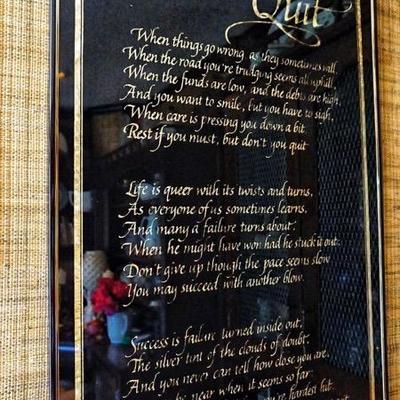 Quit
When things go wrong as they sometimes will,
When the road you're trudging seems all uphill,
When the funds are low, and the debts are high,
And you want to smile, but you have to sigh,
When care is pressing you down a bit
Rest if you must, but don't you quit
Life is queer with its twists and turns,
As everyone of us sometimes learns,
And many a failure turns about;
When he might have won had he stuck it out:
Don't give up though the pace seems slow
You may succeed with another blow.
Success is failure turned inside out,
The silver tint of the clouds of doubt,
And you never can tell how close you are,
be near when it seems so far:
you're hardest hit